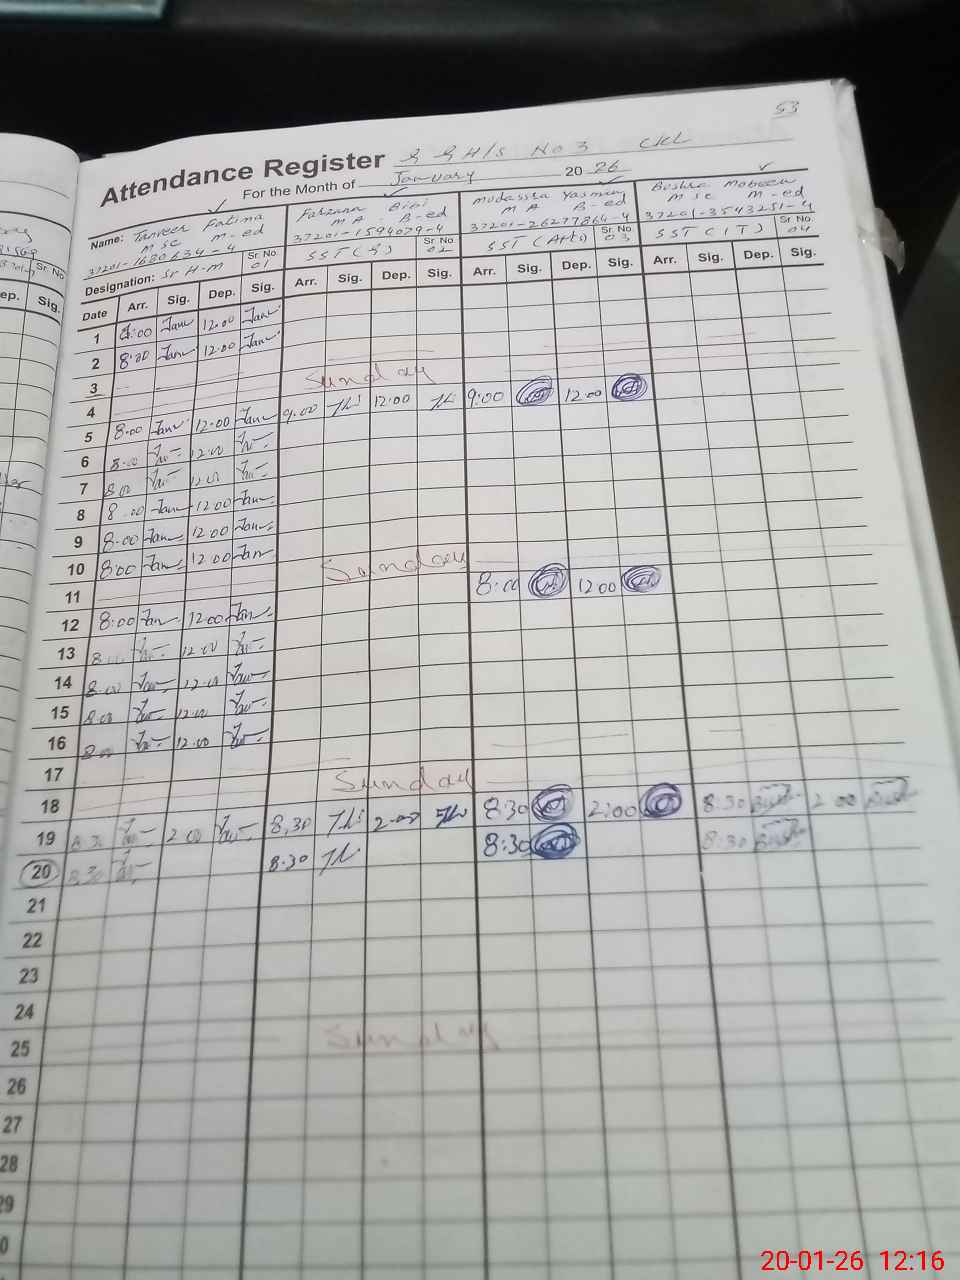 53
Attendance Register G G H/S No 3 CKL
For the Month of January 20 26
Name: Tanveer Fatima Farzana Bibi Mudassra Yasmin Boshra Mobeen
M Sc M-ed M A B-ed M A B-ed M Sc M-ed
37201-1680634-4 37201-1594079-4 37201-26277864-4 37201-3543251-4
Designation: Sr H-M Sr. No 01 SST (S) Sr. No 02 SST (Arts) Sr. No. 03 SST (IT) Sr. No. 04
Date Arr. Sig. Dep. Sig. Arr. Sig. Dep. Sig. Arr. Sig. Dep. Sig. Arr. Sig. Dep. Sig.
1 8:00 12.00
2 8:00 12.00
3
4 Sunday
5 8.00 12.00 9.00 12:00 9:00 12 00
6 8.00 12.00
7 8.00 12.00
8 8.00 12 00
9 8.00 12 00
10 8:00 12 00
11 Sunday
12 8:00 12.00 8:00 12 00
13 8 12 00
14 8.00 12.00
15 8.00 12.00
16 8.00 12.00
17
18 Sunday
19 8.30 2 00 8.30 2.00 8:30 2:00 8:30 2 00
20 8.30 8.30 8:30 8:30
21
22
23
24
25 Sunday
26
27
28
29
0
ep. Sig.
Sr. No
20-01-26 12:16